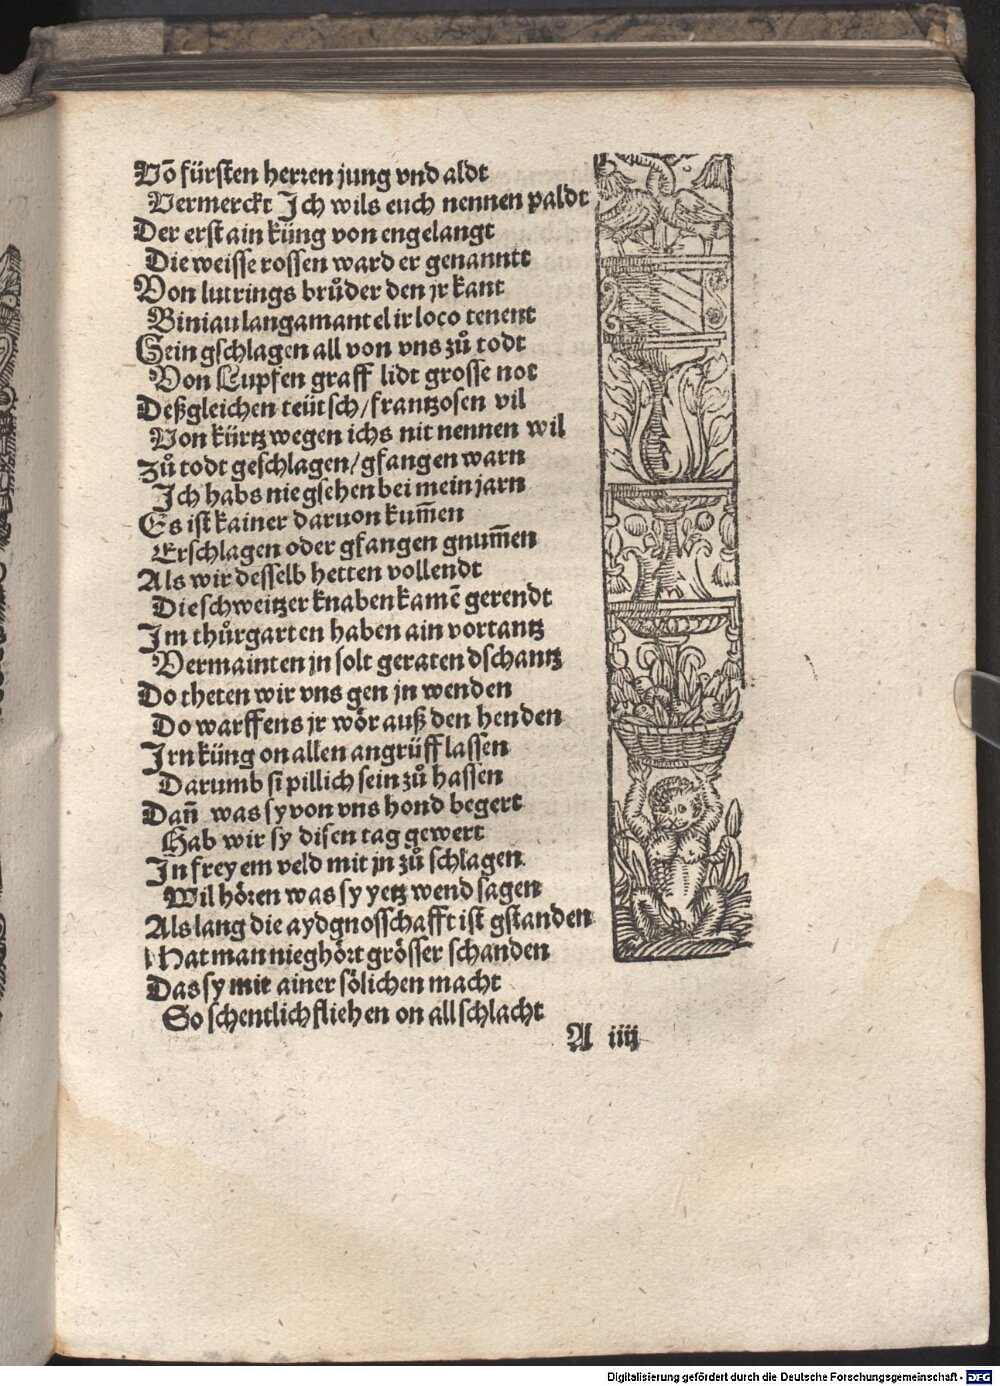 Võ fürsten herren jung vnd aldt
Vermerckt Ich wils euch nennen paldt
Der erst ain küng von engelangt
Die weisse rossen ward er genanntt
Von lutrings brůder den jr kant
Biniau langamant el ir loco tenent
Sein gschlagen all von vns zů todt
Von Lupfen graff lidt grosse not
Deßgleichen teütsch/frantzosen vil
Von kürtz wegen ichs nit nennen wil
Zů todt geschlagen/gfangen warn
Ich habs nie gsehen bei mein jarn
Es ist kainer daruon kum̃en
Erschlagen oder gfangen gnum̃en
Als wir desselb hetten vollendt
Die schweitzer knaben kamẽ gerendt
Im thůrgarten haben ain vortantz
Vermainten jn solt geraten dschantz
Do theten wir vns gen jn wenden
Do warffens jr wör auß den henden
Irn küng on allen angrüff lassen
Darumb si pillich sein zů hassen
Dañ was sy von vns hond begert
Hab wir sy disen tag gewert
In freyem veld mit jn zů schlagen
Wil hören was sy yetz wend sagen
Als lang die aydgnosschafft ist gstanden
Hat man nie ghört grösser schanden
Das sy mit ainer sölichen macht
So schentlich fliehen on all schlacht
A iiij
Digitalisierung gefördert durch die Deutsche Forschungsgemeinschaft - DFG